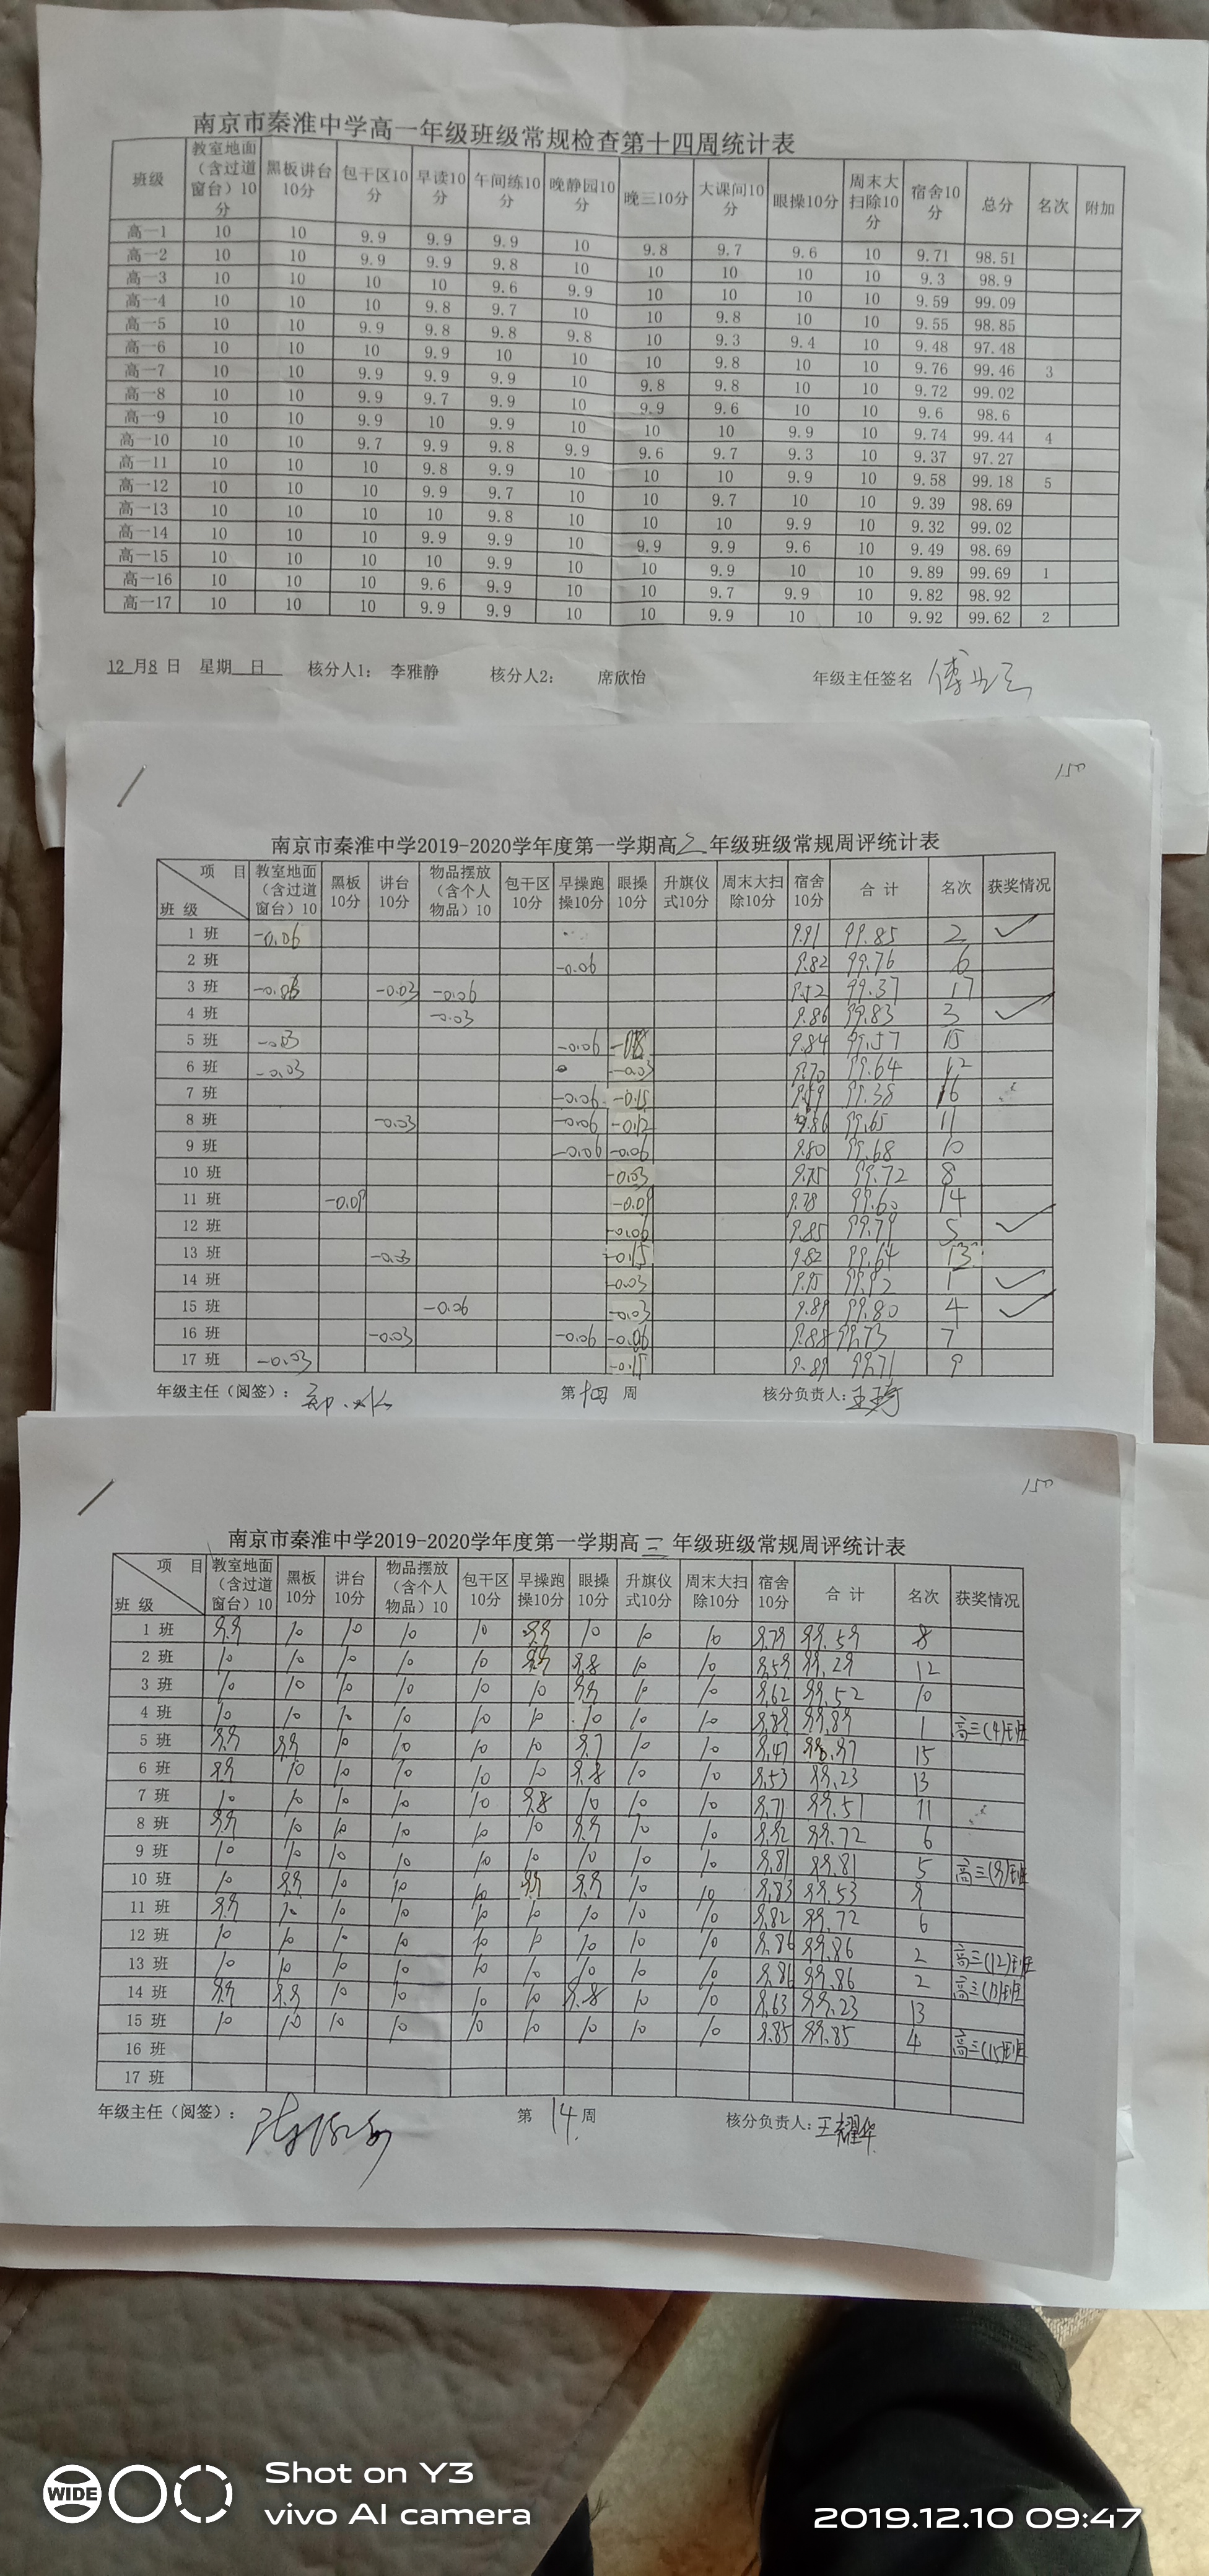 南京市秦淮中学高一年级班级常规检查第十四周统计表
班级 教室地面（含过道窗台）10分 黑板讲台10分 包干区10分 早读10分 午间练10分 晚静园10分 晚三10分 大课间10分 眼操10分 周末大扫除10分 宿舍10分 总分 名次 附加
高一1 10 10 9.9 9.9 9.9 10 9.8 9.7 9.6 10 9.71 98.51
高一2 10 10 9.9 9.9 9.8 10 10 10 10 10 9.3 98.9
高一3 10 10 10 10 9.6 9.9 10 10 10 10 9.59 99.09
高一4 10 10 10 9.8 9.7 10 10 9.8 10 10 9.55 98.85
高一5 10 10 9.9 9.8 9.8 9.8 10 9.3 9.4 10 9.48 97.48
高一6 10 10 10 9.9 10 10 10 9.8 10 10 9.76 99.46 3
高一7 10 10 9.9 9.9 9.9 10 9.8 9.8 10 10 9.72 99.02
高一8 10 10 9.9 9.7 9.9 10 9.9 9.6 10 10 9.6 98.6
高一9 10 10 9.9 10 9.9 10 10 10 9.9 10 9.74 99.44 4
高一10 10 10 9.7 9.9 9.8 9.9 9.6 9.7 9.3 10 9.37 97.27
高一11 10 10 10 9.8 9.9 10 10 10 9.9 10 9.58 99.18 5
高一12 10 10 10 9.9 9.7 10 10 9.7 10 10 9.39 98.69
高一13 10 10 10 10 9.8 10 10 10 9.9 10 9.32 99.02
高一14 10 10 10 9.9 9.9 10 9.9 9.9 9.6 10 9.49 98.69
高一15 10 10 10 10 9.9 10 10 9.9 10 10 9.89 99.69 1
高一16 10 10 10 9.6 9.9 10 10 9.7 9.9 10 9.82 98.92
高一17 10 10 10 9.9 9.9 10 10 9.9 10 10 9.92 99.62 2
12月8日 星期日 核分人1： 李雅静 核分人2： 席欣怡 年级主任签名
150
南京市秦淮中学2019-2020学年度第一学期高二年级班级常规周评统计表
项目 班级 教室地面（含过道窗台）10 黑板10分 讲台10分 物品摆放（含个人物品）10 包干区10分 早操跑操10分 眼操10分 升旗仪式10分 周末大扫除10分 宿舍10分 合计 名次 获奖情况
1班 -0.06 9.91 99.85 2 ✓
2班 -0.06 9.82 99.76 6
3班 -0.06 -0.03 -0.06 9.52 99.37 17
4班 -0.03 9.86 99.83 3 ✓
5班 -0.03 -0.06 9.84 99.57 15
6班 -0.03 -0.03 9.70 99.64 12
7班 -0.06 -0.15 9.59 99.38 16
8班 -0.03 -0.06 -0.12 9.86 99.65 11
9班 -0.06 -0.06 9.80 99.68 10
10班 -0.03 9.75 99.72 8
11班 -0.09 -0.09 9.78 99.60 14
12班 -0.06 9.85 99.79 5 ✓
13班 -0.03 -0.15 9.82 99.64 13
14班 -0.03 9.95 99.92 1 ✓
15班 -0.06 -0.03 9.89 99.80 4 ✓
16班 -0.03 -0.06 -0.06 9.88 99.73 7
17班 -0.03 -0.15 9.89 99.71 9
年级主任（阅签）： 第十四周 核分负责人：王琦
150
南京市秦淮中学2019-2020学年度第一学期高三年级班级常规周评统计表
项目 班级 教室地面（含过道窗台）10 黑板10分 讲台10分 物品摆放（含个人物品）10 包干区10分 早操跑操10分 眼操10分 升旗仪式10分 周末大扫除10分 宿舍10分 合计 名次 获奖情况
1班 9.9 10 10 10 10 9.9 10 10 10 9.79 99.59 8
2班 10 10 10 10 10 9.9 9.8 10 10 9.59 99.29 12
3班 10 10 10 10 10 10 9.9 10 10 9.62 99.52 10
4班 10 10 10 10 10 10 10 10 10 9.89 99.89 1 高三(4)班
5班 9.9 9.9 10 10 10 10 9.7 10 10 9.47 98.97 15
6班 9.9 10 10 10 10 10 9.8 10 10 9.53 99.23 13
7班 10 10 10 10 10 9.8 10 10 10 9.71 99.51 11
8班 9.9 10 10 10 10 10 9.9 10 10 9.92 99.72 6
9班 10 10 10 10 10 10 10 10 10 9.81 99.81 5 高三(9)班
10班 10 9.9 10 10 10 9.9 9.9 10 10 9.83 99.53 9
11班 9.9 10 10 10 10 10 10 10 10 9.82 99.72 6
12班 10 10 10 10 10 10 10 10 10 9.86 99.86 2 高三(12)班
13班 10 10 10 10 10 10 10 10 10 9.86 99.86 2 高三(13)班
14班 9.9 9.9 10 10 10 10 9.8 10 10 9.63 99.23 13
15班 10 10 10 10 10 10 10 10 10 9.85 99.85 4 高三(15)班
16班
17班
年级主任（阅签）： 第14周 核分负责人：王耀华
WIDE
Shot on Y3
vivo AI camera
2019.12.10 09:47